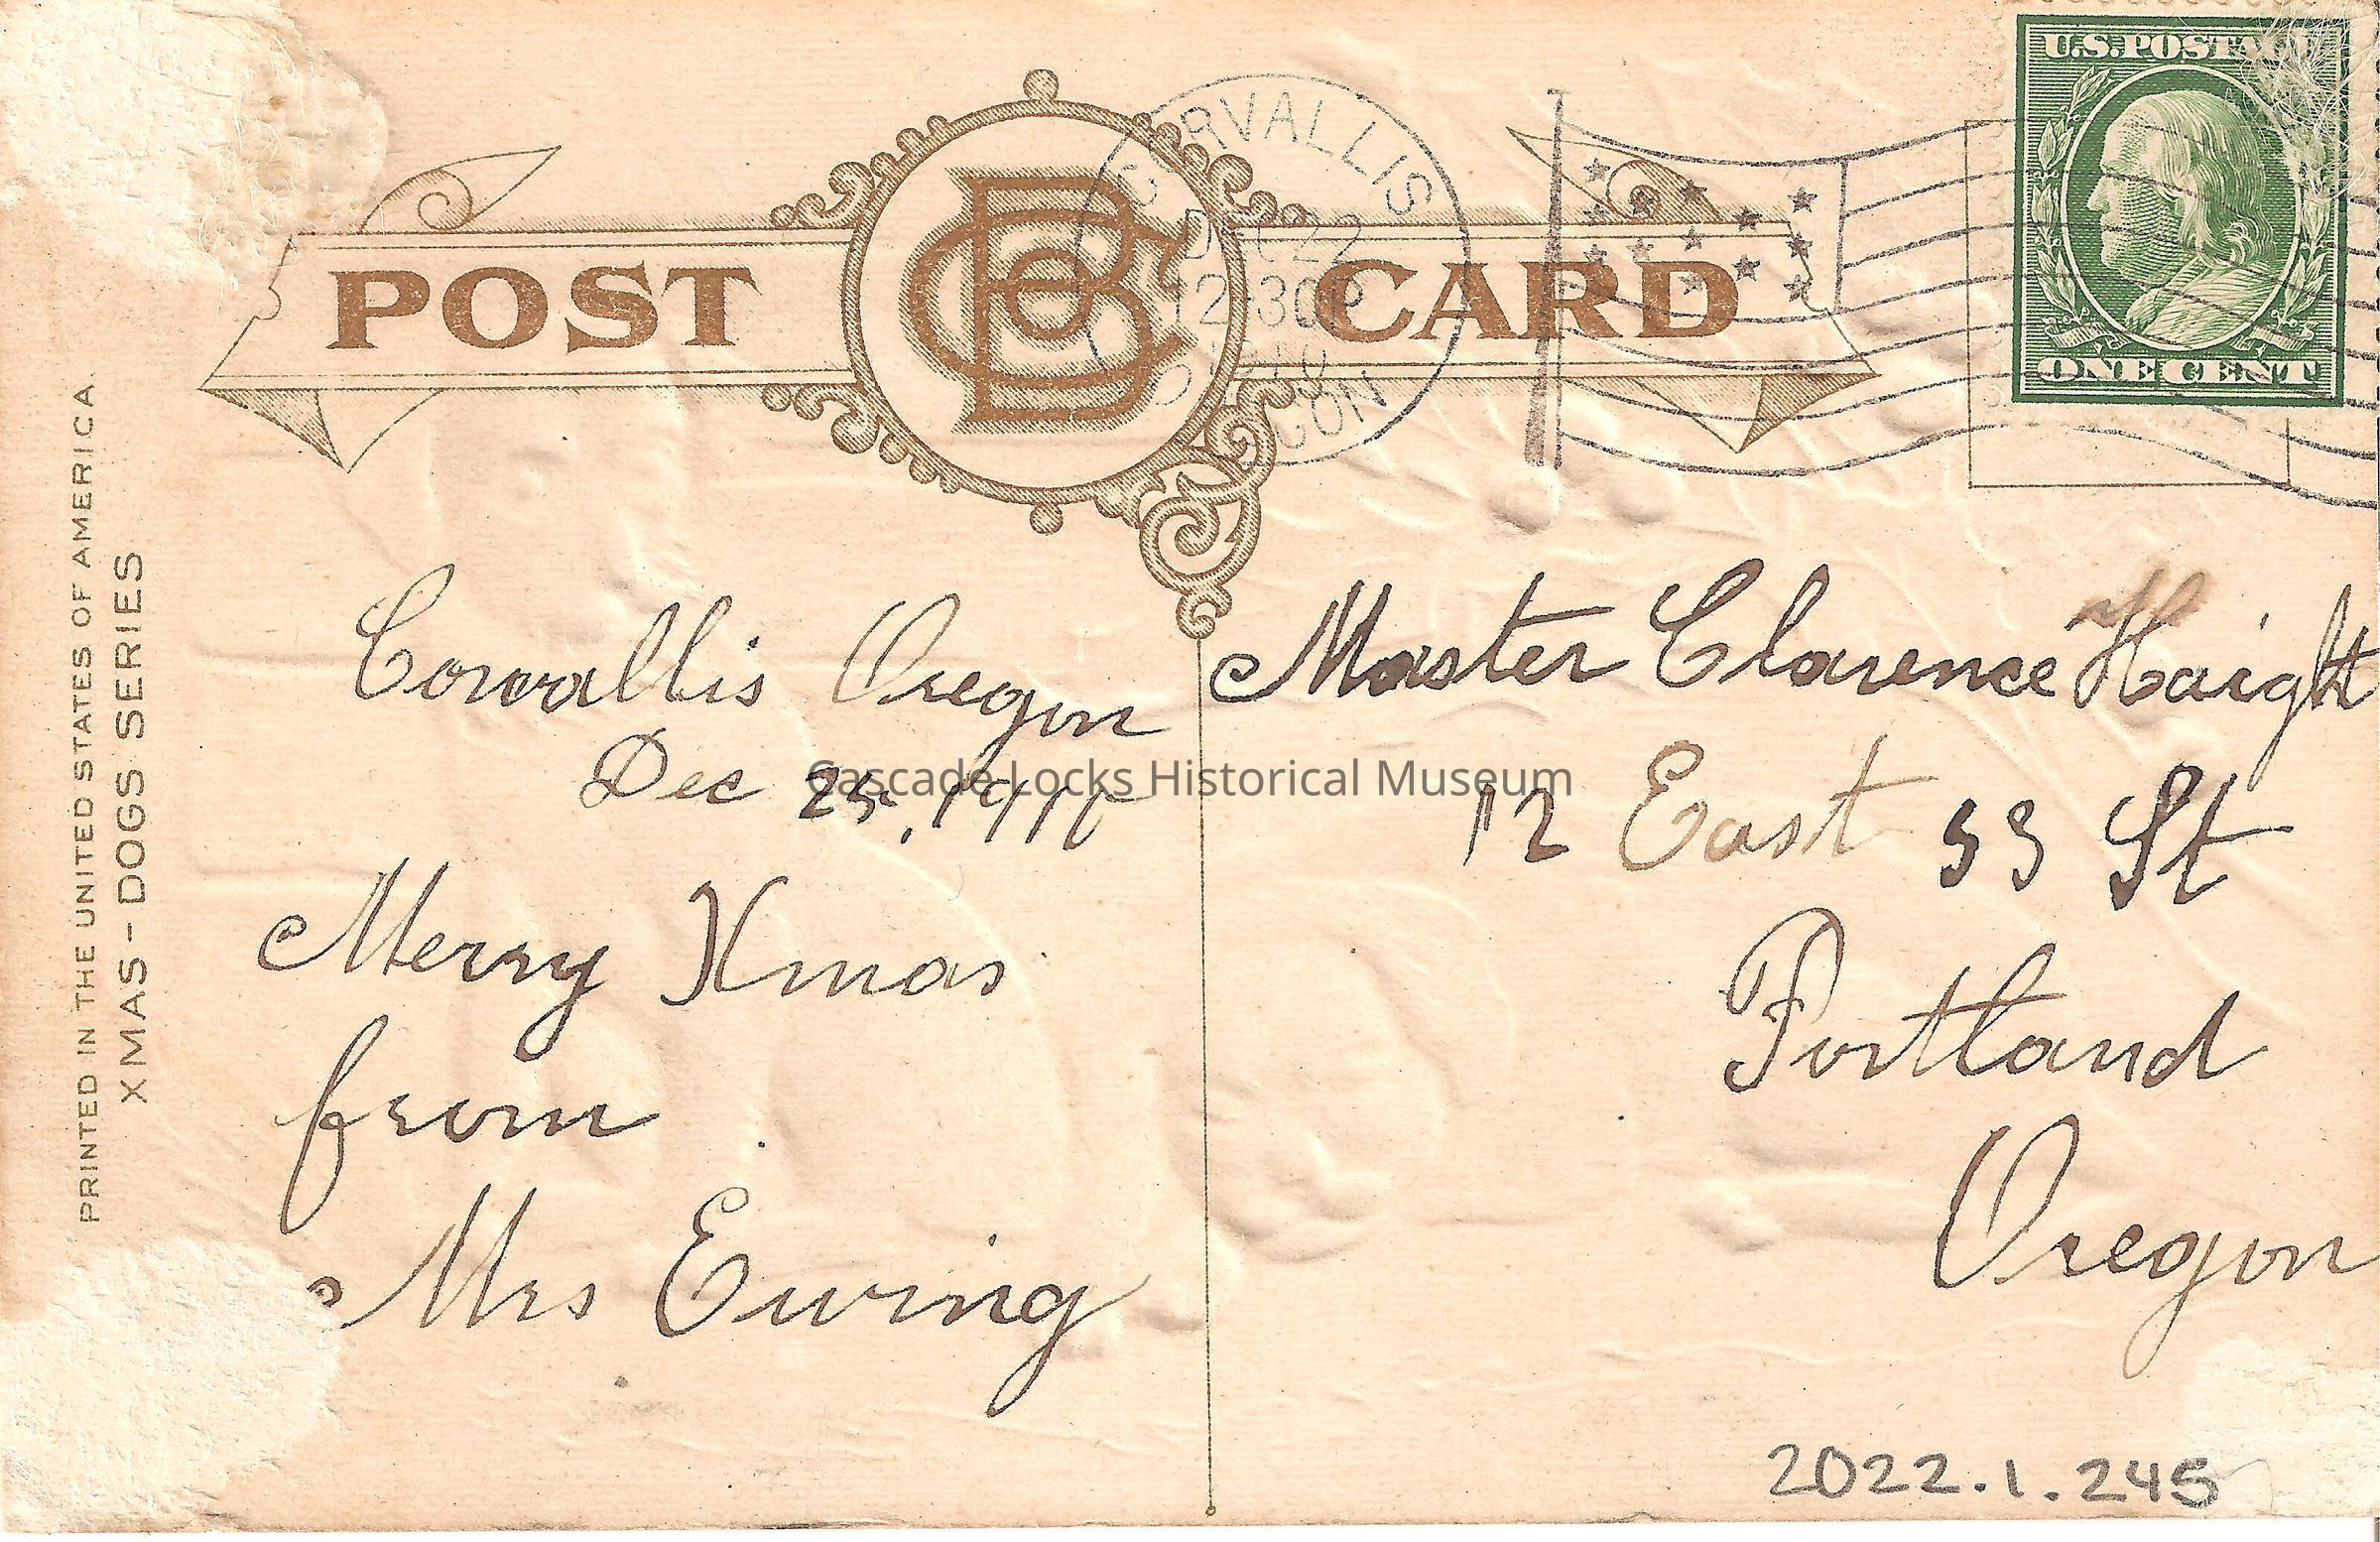 POST CARD
CORVALLIS
DEC 22
12-30P
1910
U.S. POSTAGE
ONE CENT
PRINTED IN THE UNITED STATES OF AMERICA.
XMAS-DOGS SERIES
Corvallis Oregon
Dec 25, 1910
Merry Xmas
from
Mrs Ewing
Master Clarence Haight
12 East 33 St
Portland
Oregon
Cascade Locks Historical Museum
2022.1.245